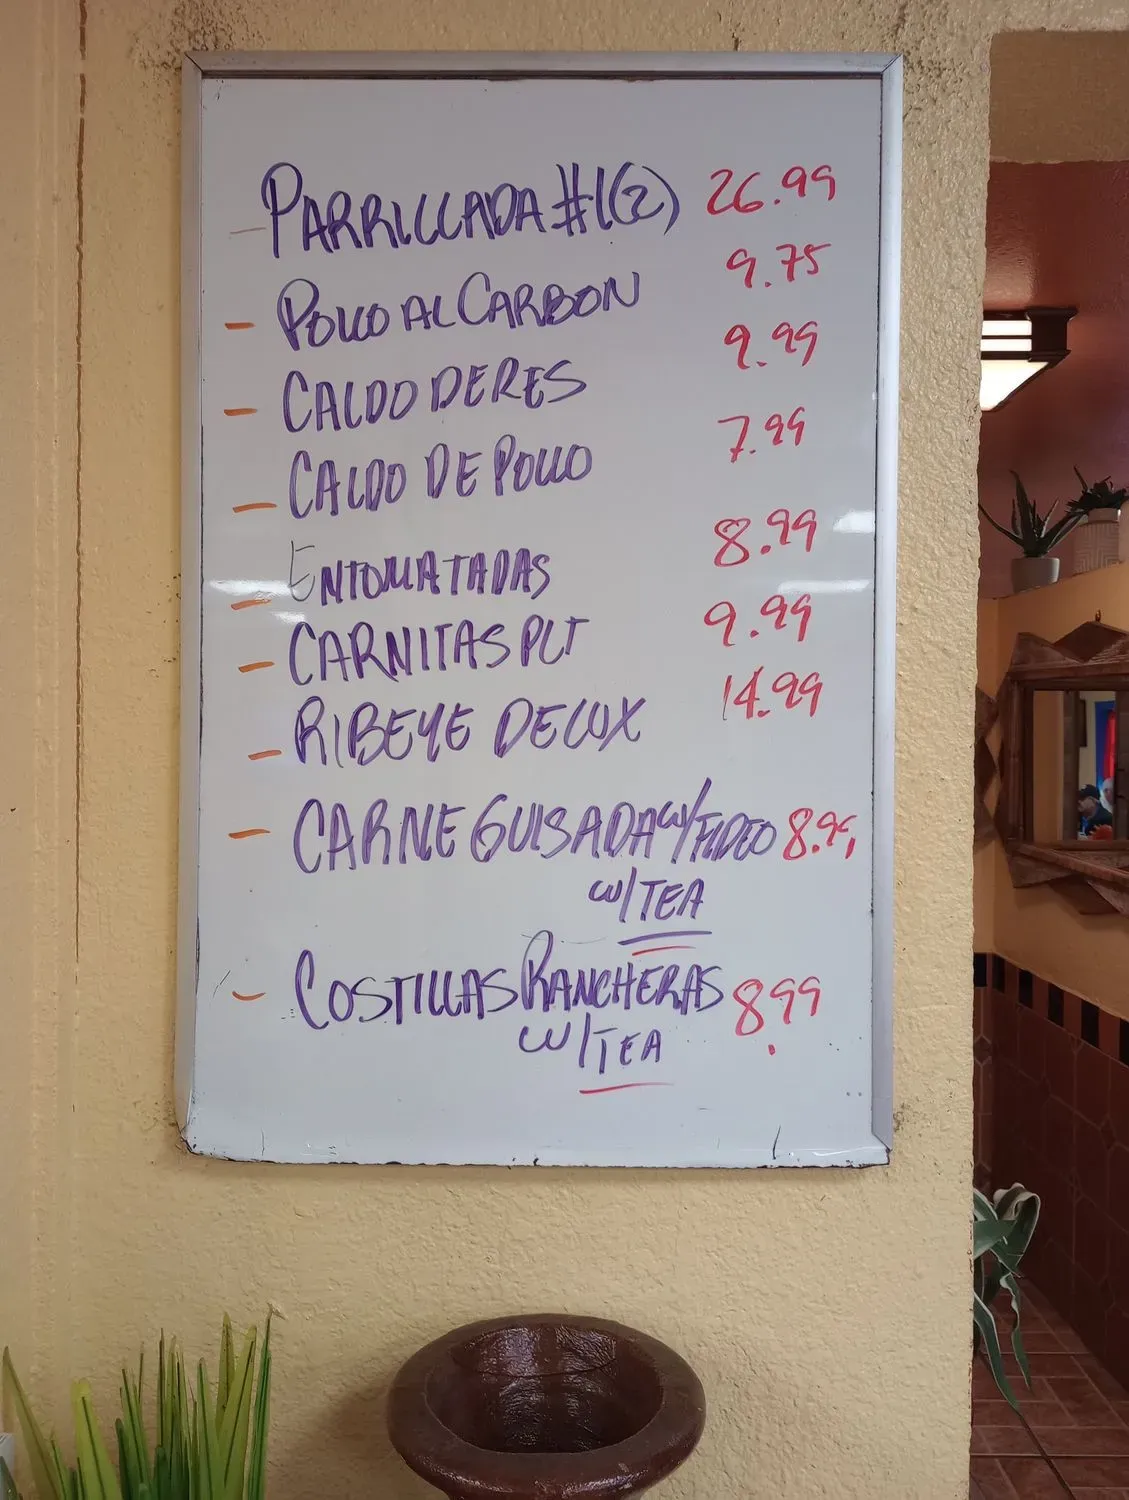 - PARRILLADA #1(2) 26.99
- POLLO AL CARBON 9.75
- CALDO DE RES 9.99
- CALDO DE POLLO 7.99
- ENTOMATADAS 8.99
- CARNITAS PLT 9.99
- RIBEYE DELUX 14.99
- CARNE GUISADA W/FIDEO 8.99
W/TEA
- COSTILLAS RANCHERAS 8.99
W/TEA